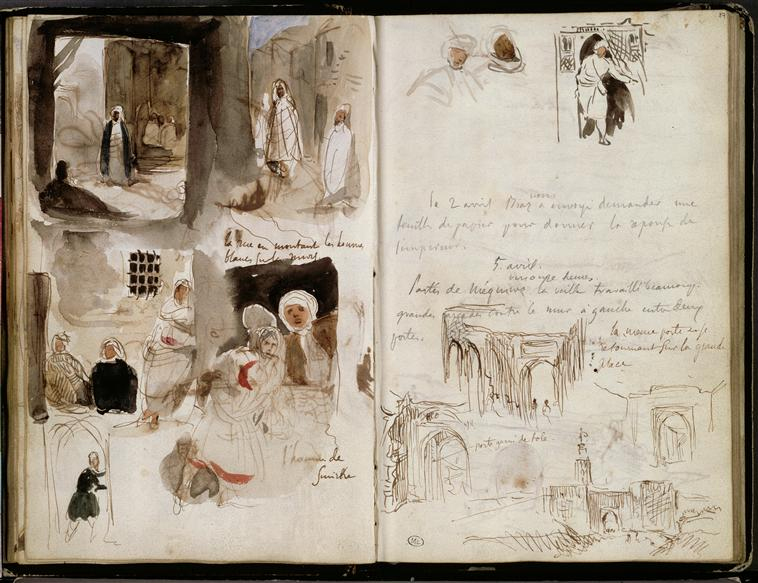 la rue en montant les hommes
blancs sur les murs
l'homme de
nous
le 2 avril Biaz a envoyé demander une
feuille de papier pour donner la reponse de
l'empereur.
5 avril.
vers onze heures.
Partis de Méquinez la veille travaillé beaucoup.
grandes arcades contre le mur à gauche entre deux
portes.
la meme porte en se
retournant sur la grande
place
porte garni de tole